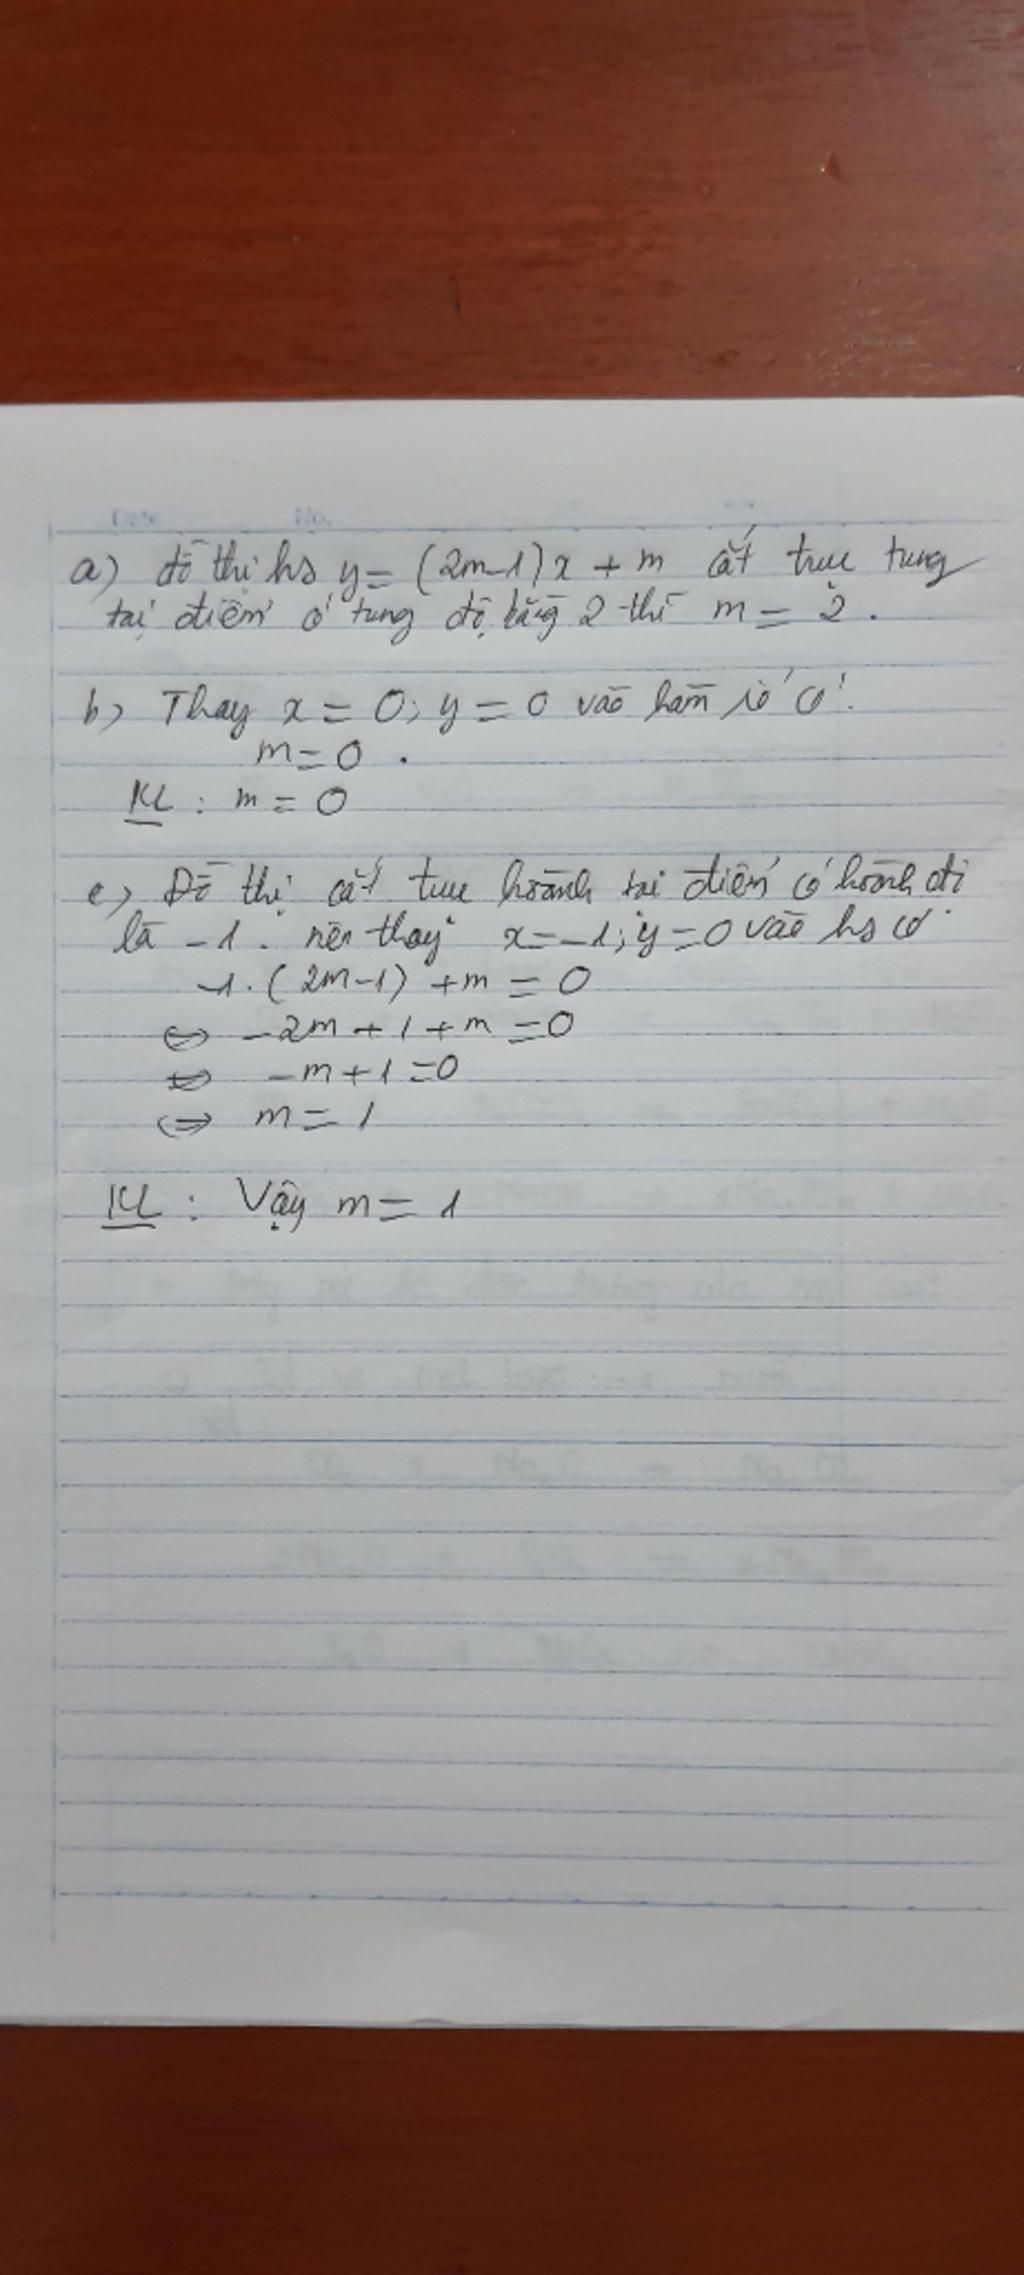 Date No.
a) đồ thị hs y = (2m-1)x + m cắt trục tung
tại điểm có tung độ bằng 2 thì m = 2.
b) Thay x = 0; y = 0 vào hàm số có:
m = 0.
KL: m = 0
c) Đồ thị cắt trục hoành tại điểm có hoành độ
là -1. nên thay x = -1; y = 0 vào hs có
-1.(2m-1) + m = 0
⇔ -2m + 1 + m = 0
⇔ -m + 1 = 0
⇔ m = 1
KL: Vậy m = 1